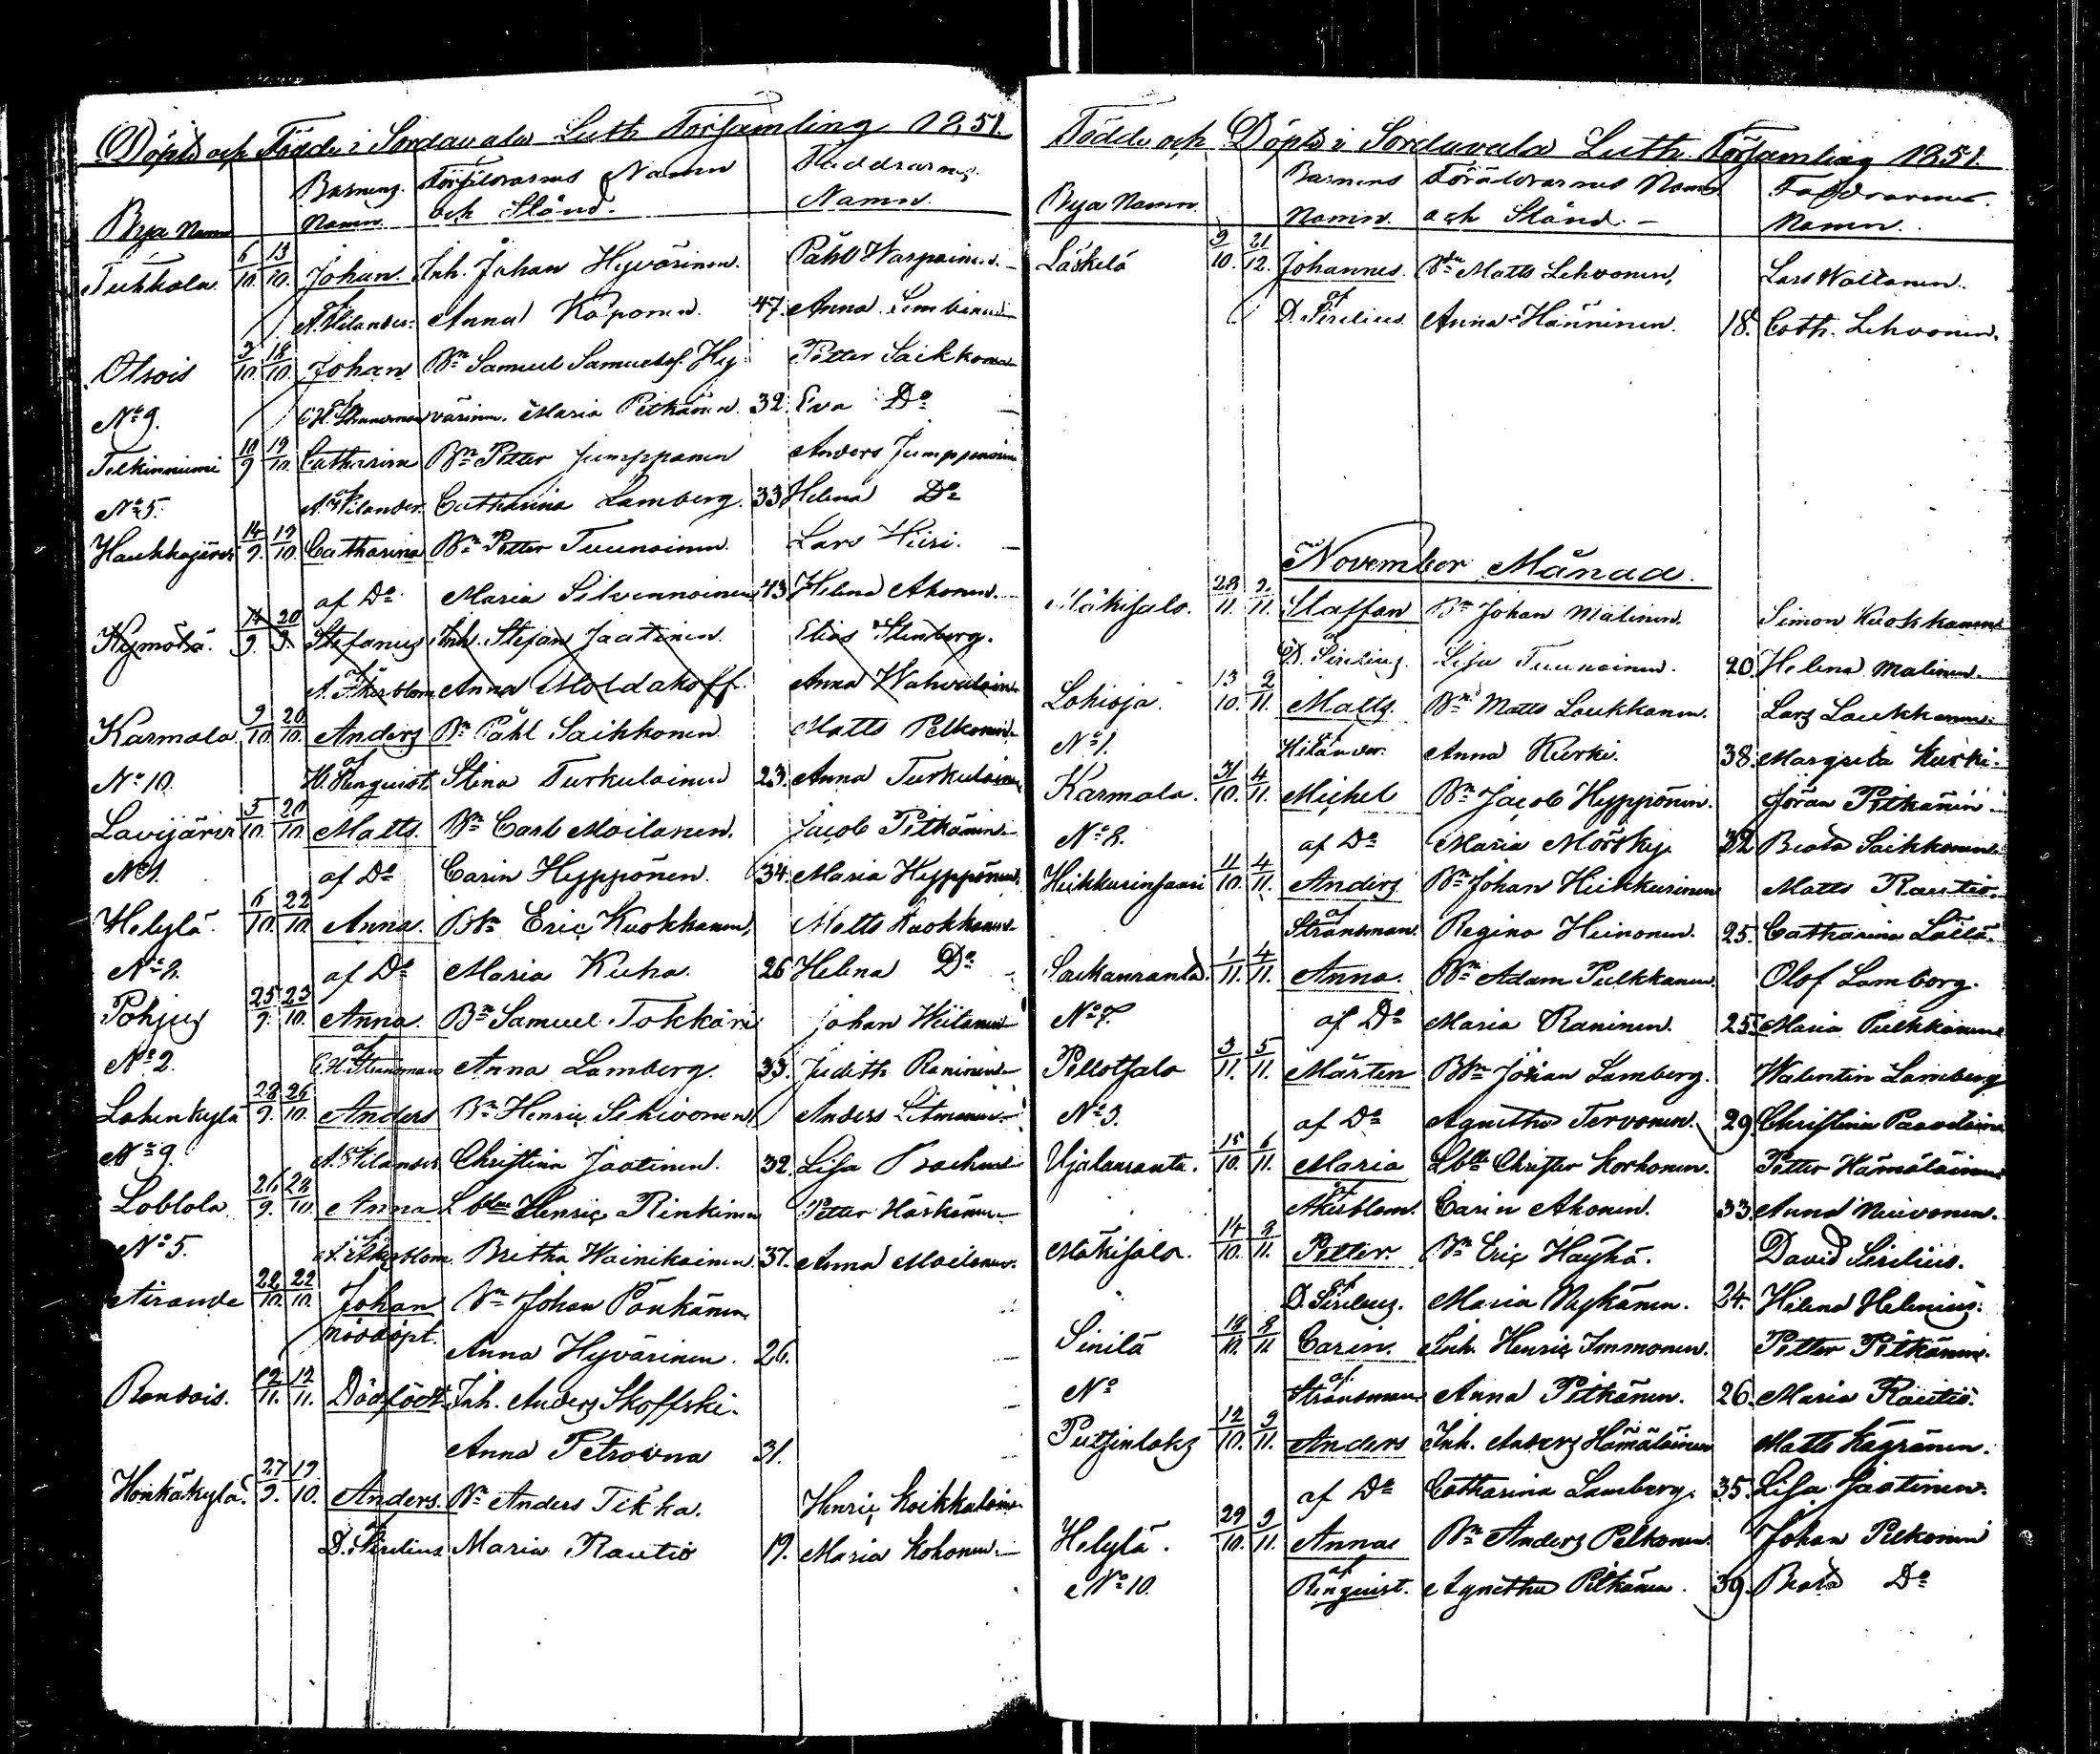 Döpte och Födde i Sordavala Luth Församling 1851.
Bya Namn Barnens Namn Föräldrarnes Namn och Stånd. Faddrarnes Namn.
Tukkola 6/10. 13/10. Johan Inh. Johan Hyvärinen. Påhl Warpainen.
af A. Hilander. Anna Kaponen. 47. Anna
Otsois 3/10. 18/10. Johan Bn Samuel Samuelsf. Hy- Petter Saikkonen
No 9. af C.H. Strandman värinen. Maria Pitkänen. 32. Eva Do
Telkinniemi 10/9 19/10. Catharina Bn Petter Jumpponen Anders Jumpponen
No 5. af A. Hilander. Catharina Lamberg. 33 Helena Do
Haukkajärvi 14/9. 19/10. Catharina Bn Petter Tuunainen. Lars Hiiri.
af Do Maria Silvennoinen 43 Helena Ahonen.
Kymölä. 14/9. 20/9. Stefanus Inh. Stefan Jaatinen. Elias Stenberg.
af A. Åkerblom Anna Moldakoff. Anna Wahvalainen
Karmala 9/10. 20/10. Anders Bn Påhl Saikkonen Matts Pelkonen
No 10. af H. Renquist Stina Turkulainen 23. Anna Turkulainen
Lavijärvi 5/10. 20/10. Matts. Bn Carl Moilanen. Jacob Pitkänen
No 1. af Do Carin Hyppönen. 34. Maria Hyppönen.
Helylä 6/10. 22/10. Anna. Bn Eric Kuokkanen, Matts Kuokkanen
No 2. af Do Maria Kuha. 26 Helena Do
Pohjus 25/9. 23/10. Anna. Bn Samuel Tokkari Johan Heitanen
No 2. af C.H. Strandman Anna Lamberg. 35. Judith Raninen
Lohenkylä 28/9. 26/10. Anders Bn Henric Sihvonen Anders Litmanen
No 9. af A. Hilander Christina Jaatinen. 32. Lisa
Loblola 26/9. 28/10. Anna Lbln Henric Rinkinen Petter Härkönen
No 5. af A. Åkerblom Britha Wainikainen. 37. Anna Moilanen.
Airande 22/10. 22/10. Johan Bn Johan Pänkänen
nöddöpt. Anna Hyvärinen. 26.
Randois. 12/11. 12/11. Dödfödt Inh. Anders Skoffski.
Anna Petrovna 31.
Honkakylä. 27/9. 19/10. Anders. Bn Anders Tikka. Henric Koikkalainen
af D. Sirelius Maria Rautio 19. Maria Kohonen.
Födde och Döpte i Sordavala Luth. Församling 1851.
Bya Namn. Barnens Namn. Föräldrarnes Namn och Stånd. Faddrarnes Namn.
Läskelä 9/10. 21/12. Johannes. Bn Matts Lehvonen, Lars Waltonen.
af D. Sirelius. Anna Hänninen. 18. Cath. Lehvonen.
November Månad.
Mäkisalo. 28/11. 2/11. Staffan Bn Johan Malinen. Simon Kuokkanen
af D. Sirelius. Lisa Tuunainen. 20. Helena Malinen.
Lohioja 13/10. 2/11. Matts. Bn Matts Laukkanen. Lars Laukkanen
No 1. af Hilander. Anna Kurki. 38. Margreta Kurki.
Karmala. 31/10. 4/11. Michel Bn Jacob Hyppönen. Jöran Pitkänen
No 8. af Do Maria Mörsky. 32 Beata Saikkonen
Heikkurinsaari 11/10. 4/11. Anders Bn Johan Heikkurinen Matts Rautio.
af Strandman. Regina Heinonen. 25. Catharina Lätti.
Saikanranta. 1/11. 4/11. Anna. Bn Adam Pulkkanen Olof Lamberg.
No 7. af Do Maria Raninen. 25. Maria Pulkkanen
Pellotsalo 3/11. 5/11. Mårten Bn Johan Lamberg. Walentin Lamberg
No 3. af Do Agnetha Tervonen. 29. Christina Paavilainen
Ujalanranta. 15/10. 6/11. Maria Lbln Christer Korhonen. Petter Hämäläinen
af Åkerblom. Carin Ahonen. 33. Anna Neuvonen.
Mäkisalo. 14/10. 8/11. Petter. Bn Eric Häyhä. David Sirelius.
af D. Sirelius. Maria Nykänen. 24. Helena Helenius.
Sinilä 18/10. 8/11 Carin. Inh. Henric Immonen. Petter Pitkänen.
No af Strandman Anna Pitkänen. 26. Maria Rautio.
Putsinlaks 12/10. 9/11. Anders Inh. Anders Hämäläinen Matts Kägränen.
af Do Catharina Lamberg. 35. Lisa Jaatinen.
Helylä. 29/10. 9/11. Anna Bn Anders Pelkonen. Johan Pelkonen
No 10. af Renquist. Agnetha Pitkänen. 39. Beata Do